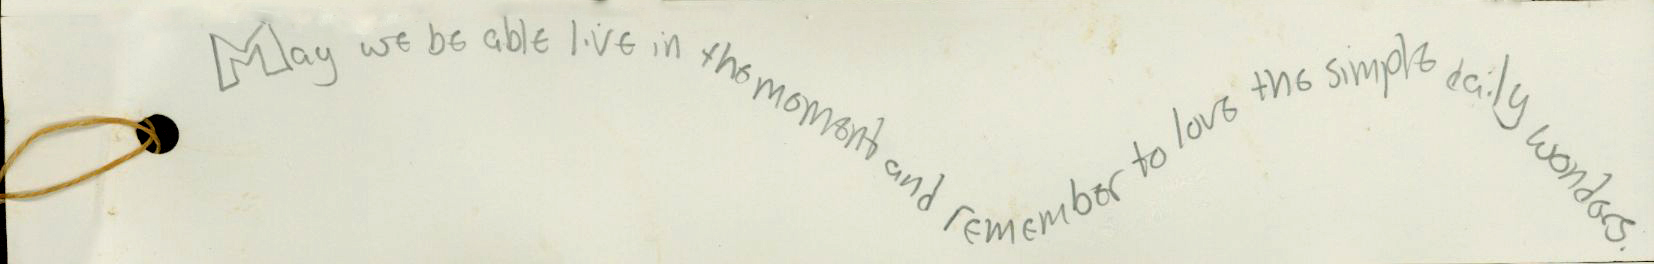 May we be able live in the moment and remember to love the simple daily wonders.